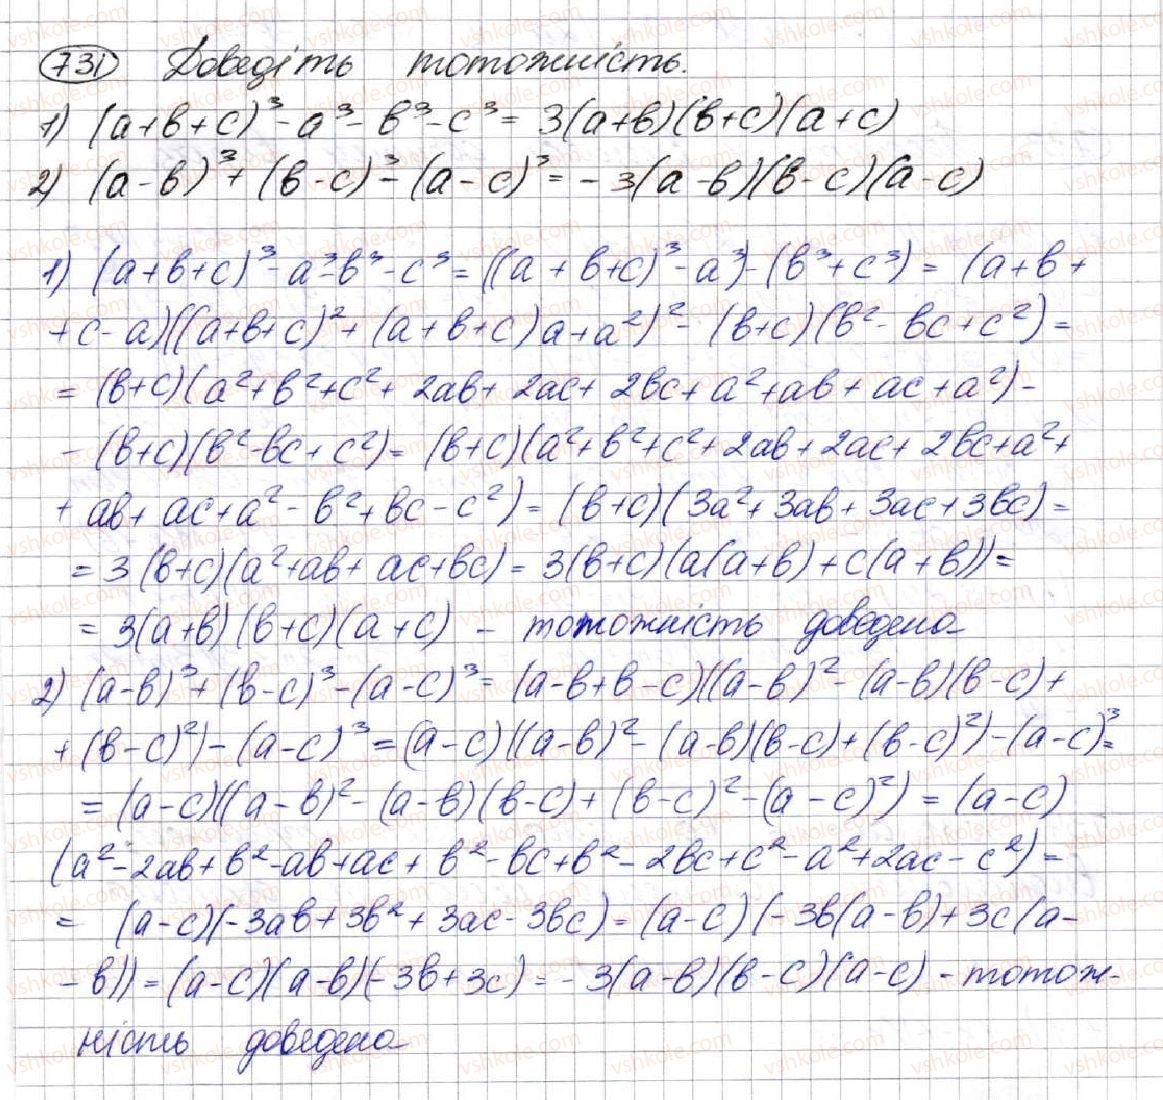 731 Доведіть тотожність.
1) (a+b+c)³-a³-b³-c³= 3(a+b)(b+c)(a+c)
2) (a-b)³+(b-c)³-(a-c)³=-3(a-b)(b-c)(a-c)
1) (a+b+c)³-a³-b³-c³=((a+b+c)³-a³)-(b³+c³)= (a+b+
+c-a)((a+b+c)²+(a+b+c)a+a²)²-(b+c)(b²-bc+c²)=
=(b+c)(a²+b²+c²+2ab+2ac+2bc+a²+ab+ac+a²)-
-(b+c)(b²-bc+c²)=(b+c)(a²+b²+c²+2ab+2ac+2bc+a²+
+ab+ac+a²-b²+bc-c²)=(b+c)(3a²+3ab+3ac+3bc)=
=3(b+c)(a²+ab+ac+bc)=3(b+c)(a(a+b)+c(a+b))=
=3(a+b)(b+c)(a+c) - тотожність доведена
2) (a-b)³+(b-c)³-(a-c)³=(a-b+b-c)((a-b)²-(a-b)(b-c)+
+(b-c)²)-(a-c)³=(a-c)((a-b)²-(a-b)(b-c)+(b-c)²)-(a-c)³=
=(a-c)((a-b)²-(a-b)(b-c)+(b-c)²-(a-c)²)=(a-c)
(a²-2ab+b²-ab+ac+b²-bc+b²-2bc+c²-a²+2ac-c²)=
=(a-c)(-3ab+3b²+3ac-3bc)=(a-c)(-3b(a-b)+3c(a-
-b))=(a-c)(a-b)(-3b+3c)=-3(a-b)(b-c)(a-c) - тотож-
ність доведена